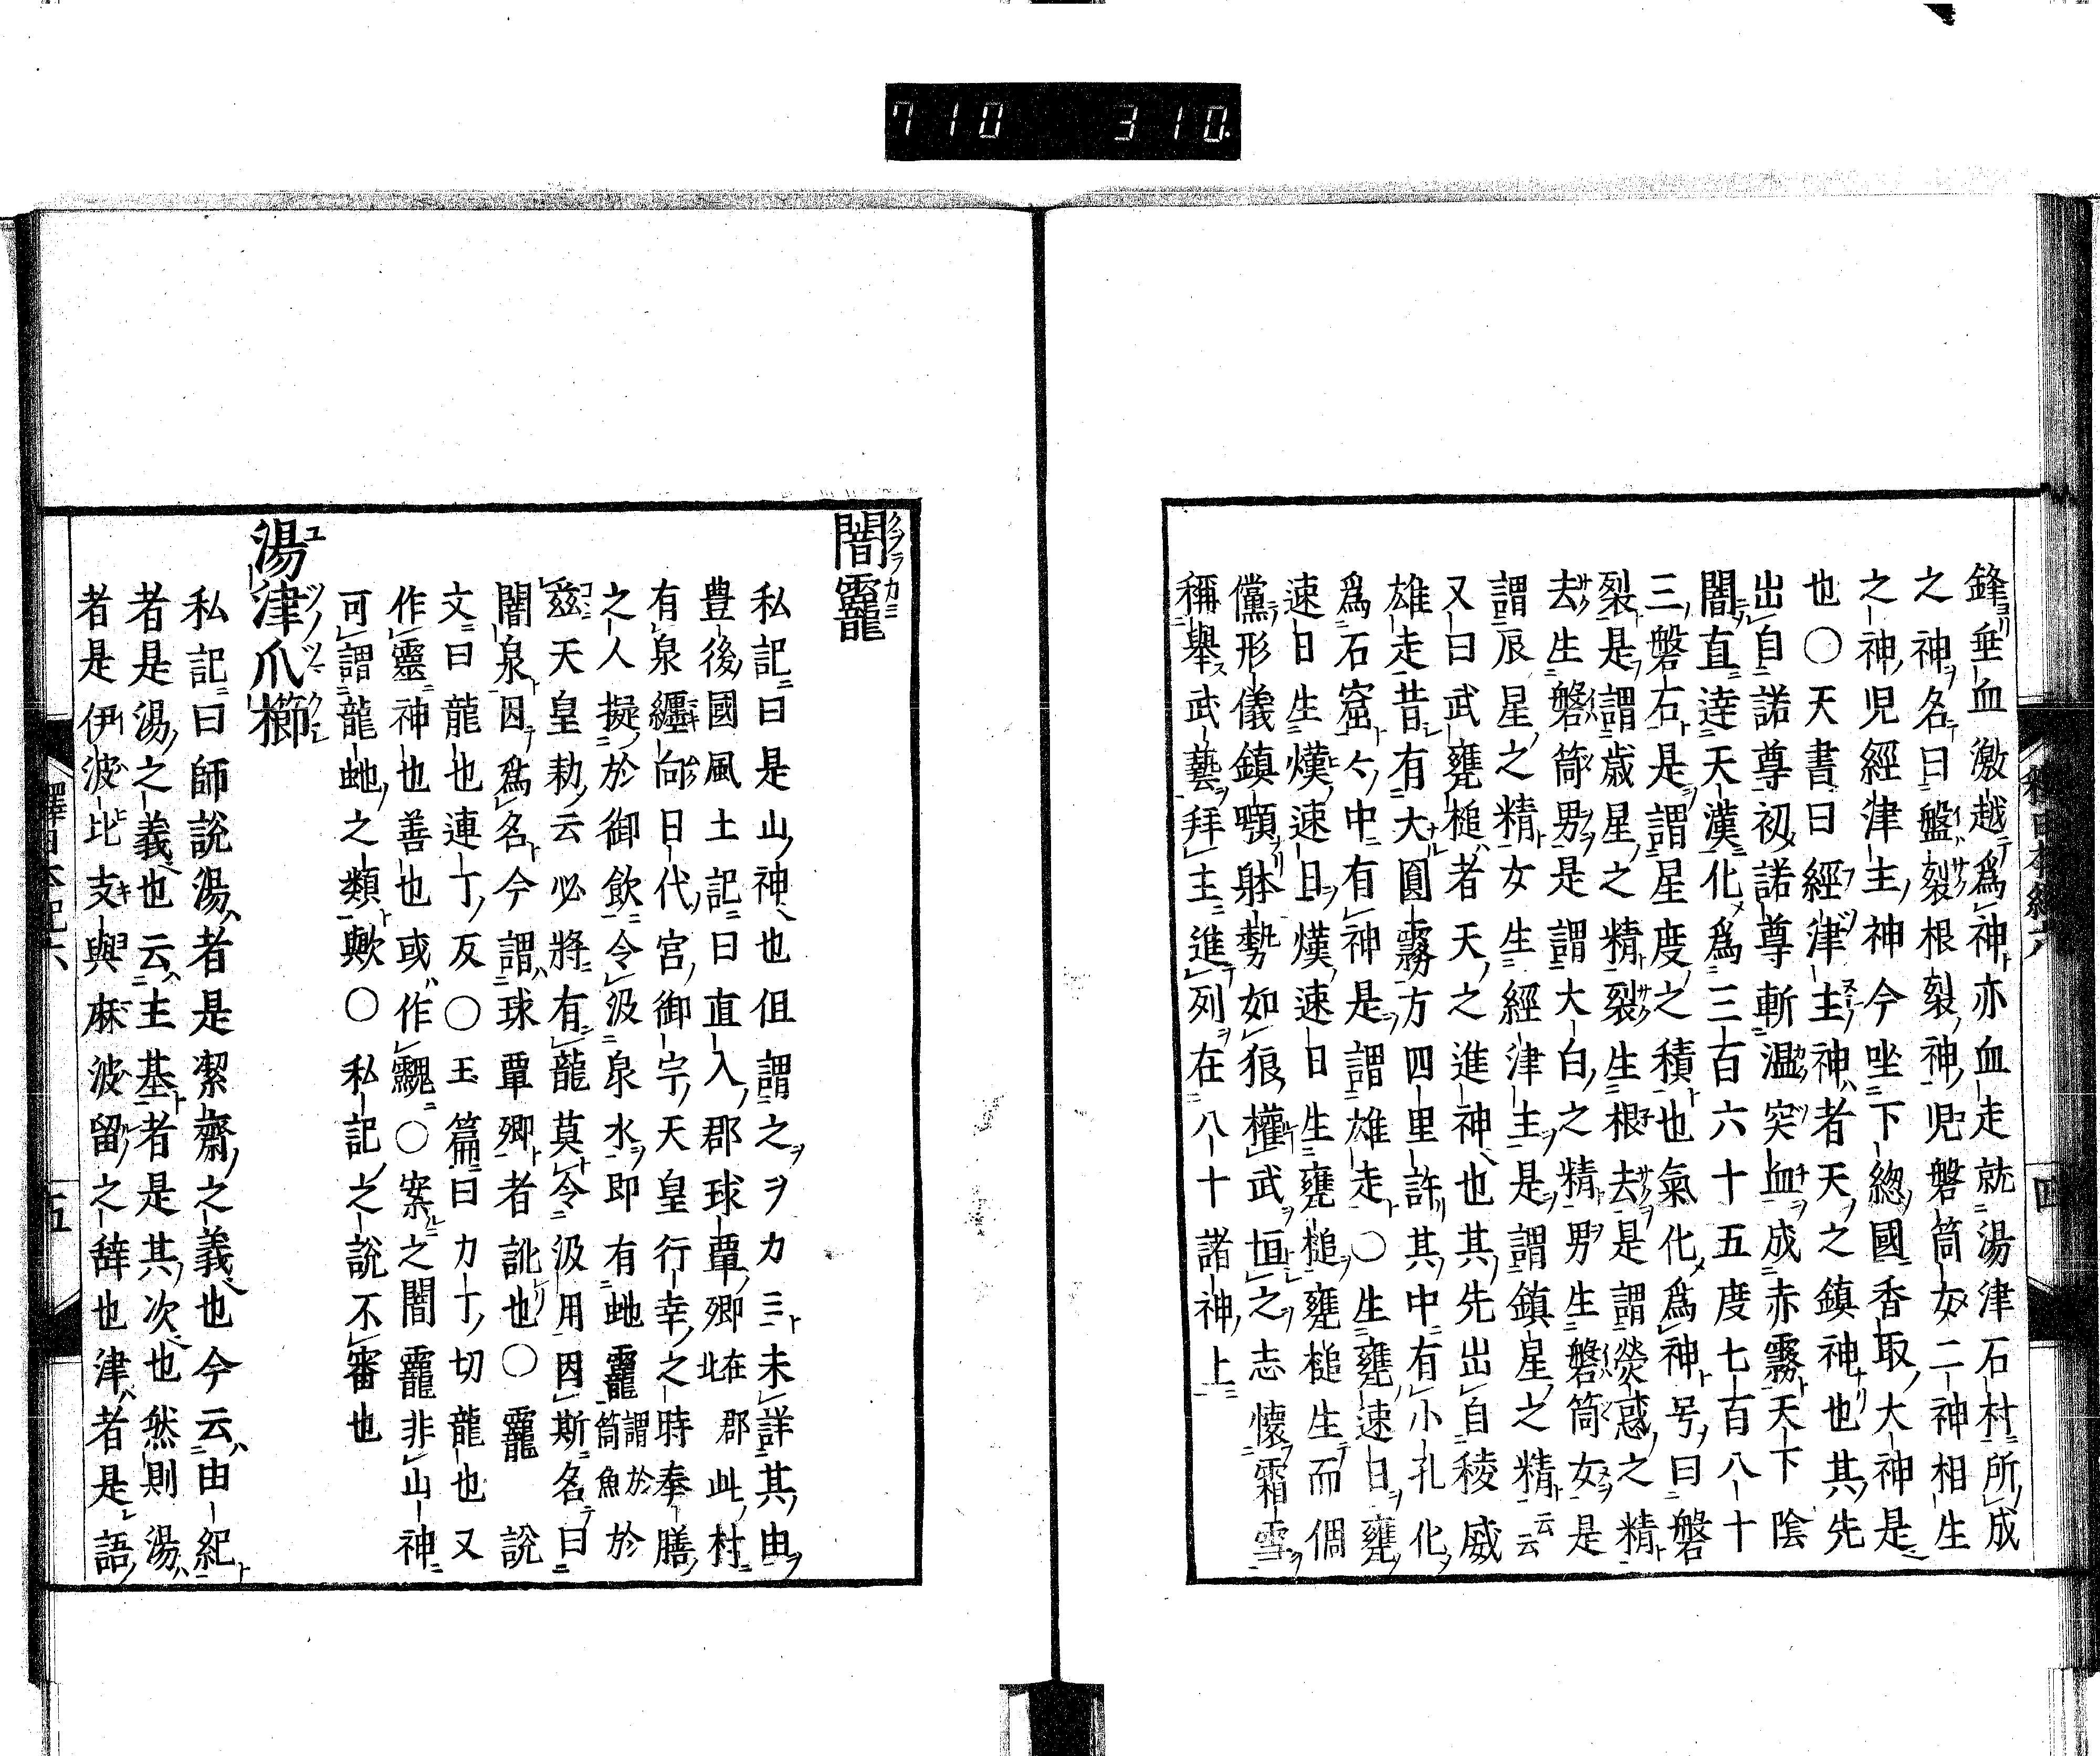 710 310.
鋒垂血激越爲神亦血走就湯津石村所成
之神名曰盤裂根裂神児磐筒女二神相生
之神児經津主神今坐下総國香取大神是
也〇天書曰經津主神者天之鎮神也其先
出自諾尊初諾尊斬温突血成赤霧天下陰
闇直達天漢化爲三百六十五度七百八十
三磐石是謂星度之積也氣化爲神号曰磐
裂是謂歳星之精裂生根去是謂熒惑之精
去生磐筒男是謂大白之精男生磐筒女是
謂辰星之精女生經津主是謂鎮星之精云
又曰武甕槌者天之進神也其先出自稜威
雄走昔有大圓霧方四里許其中有小孔化
爲石窟々中有神是謂雄走〇生甕速日甕
速日生熯速日熯速日生甕槌甕槌生而倜
儻形儀鎮顎躰勢如狼權武恒之志懷霜雪
稱擧武藝拜主進列在八十諸神上
闇龗
私記曰是山神也但謂之ヲカミ未詳其由
豊後國風土記曰直入郡球覃郷在郡北此村
有泉纒向日代宮御宇天皇行幸之時奉膳
之人擬於御飲令汲泉水即有虵龗謂於箇魚於
玆天皇勅云必將有龍莫令汲用因斯名曰
闇泉因爲名今謂球覃郷者訛也〇龗説
文曰龍也連丁反〇玉篇曰力丁切龍也又
作靈神也善也或作䰱〇案之闇龗非山神
可謂龍虵之類歟〇私記之説不審也
湯津爪櫛
私記曰師説湯者是潔齋之義也今云由紀
者是湯之義也云主基者是其次也然則湯
者是伊波比支與麻波留之辞也津者是語
釋日本紀六
四
五